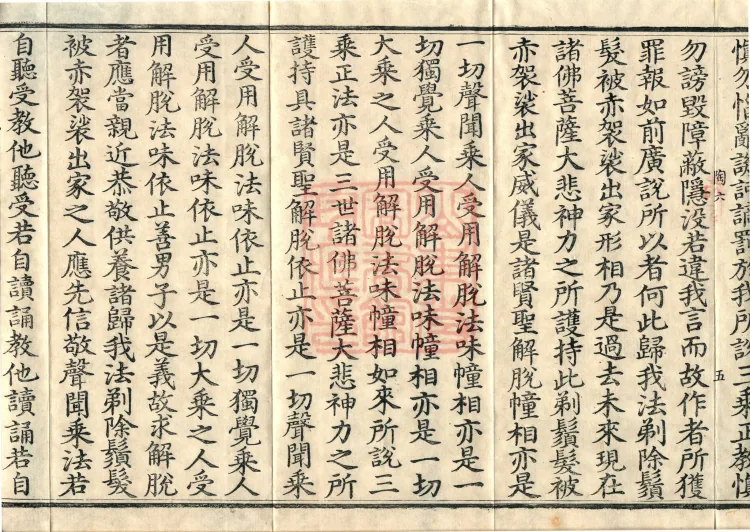 慎勿惱亂譏訶謫罰於我所說三乘正教慎
陶六
五
勿謗毀障蔽隱没若違我言而故作者所獲
罪報如前廣說所以者何此歸我法剃除鬚
髮被赤袈裟出家形相乃是過去未來現在
諸佛菩薩大悲神力之所護持此剃鬚髮被
赤袈裟出家威儀是諸賢聖解脫幢相亦是
一切聲聞乘人受用解脫法味幢相亦是一
切獨覺乘人受用解脫法味幢相亦是一切
大乘之人受用解脫法味幢相如來所說三
乘正法亦是三世諸佛菩薩大悲神力之所
護持具諸賢聖解脫依止亦是一切聲聞乘
人受用解脫法味依止亦是一切獨覺乘人
受用解脫法味依止亦是一切大乘之人受
用解脫法味依止善男子以是義故求解脫
者應當親近恭敬供養諸歸我法剃除鬚髮
被赤袈裟出家之人應先信敬聲聞乘法若
自聽受教他聽受若自讀誦教他讀誦若自